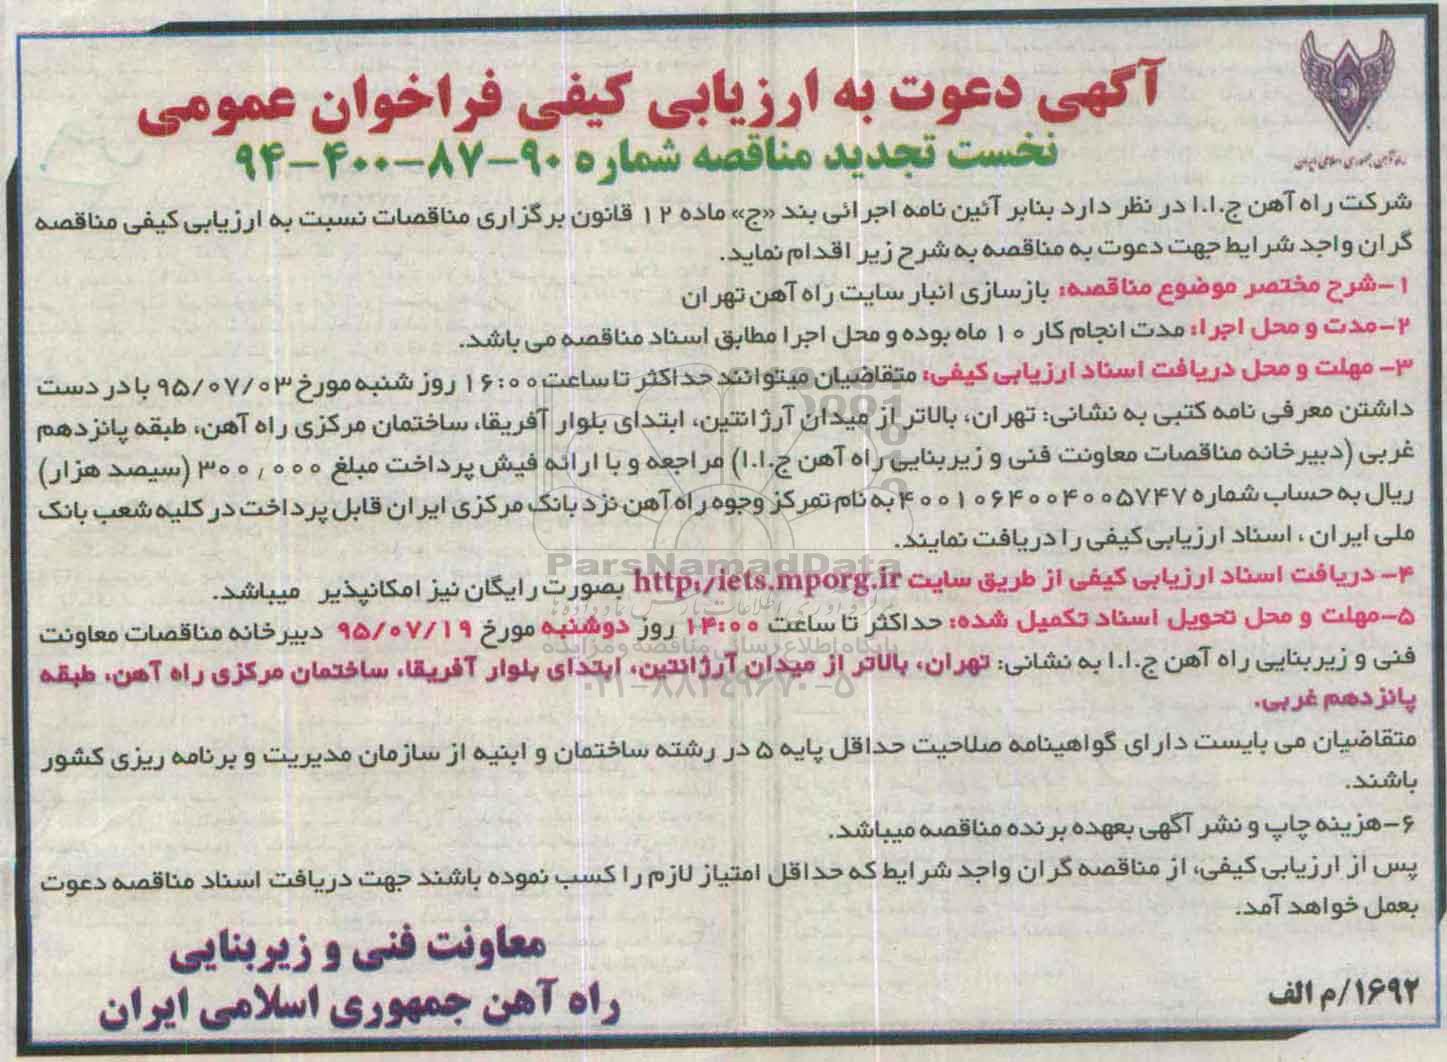 راه آهن جمهوری اسلامی ایران
آگهی دعوت به ارزیابی کیفی فراخوان عمومی
نخست تجدید مناقصه شماره ۹۰-۸۷-۴۰۰-۹۴
شرکت راه آهن ج.ا.ا در نظر دارد بنابر آئین نامه اجرائی بند «ج» ماده ۱۲ قانون برگزاری مناقصات نسبت به ارزیابی کیفی مناقصه
گران واجد شرایط جهت دعوت به مناقصه به شرح زیر اقدام نماید.
۱-شرح مختصر موضوع مناقصه: بازسازی انبار سایت راه آهن تهران
۲-مدت و محل اجرا: مدت انجام کار ۱۰ ماه بوده و محل اجرا مطابق اسناد مناقصه می باشد.
۳- مهلت و محل دریافت اسناد ارزیابی کیفی: متقاضیان میتوانند حداکثر تا ساعت ۱۶:۰۰ روز شنبه مورخ ۹۵/۰۷/۰۳ با در دست
داشتن معرفی نامه کتبی به نشانی: تهران، بالاتر از میدان آرژانتین، ابتدای بلوار آفریقا، ساختمان مرکزی راه آهن، طبقه پانزدهم
غربی (دبیرخانه مناقصات معاونت فنی و زیربنایی راه آهن ج.ا.ا) مراجعه و با ارائه فیش پرداخت مبلغ ۳۰۰٫۰۰۰ (سیصد هزار)
ریال به حساب شماره ۴۰۰۱۰۶۴۰۰۴۰۰۵۷۴۷ به نام تمرکز وجوه راه آهن نزد بانک مرکزی ایران قابل پرداخت در کلیه شعب بانک
ملی ایران ، اسناد ارزیابی کیفی را دریافت نمایند.
ParsNamadData
۴- دریافت اسناد ارزیابی کیفی از طریق سایت http:/iets.mporg.ir بصورت رایگان نیز امکانپذیر میباشد.
۵-مهلت و محل تحویل اسناد تکمیل شده: حداکثر تا ساعت ۱۴:۰۰ روز دوشنبه مورخ ۹۵/۰۷/۱۹ دبیرخانه مناقصات معاونت
پایگاه اطلاع رسانی مناقصه و مزایده
فنی و زیربنایی راه آهن ج.ا.ا به نشانی: تهران، بالاتر از میدان آرژانتین، ابتدای بلوار آفریقا، ساختمان مرکزی راه آهن، طبقه
۰۲۱-۸۸۳۴۹۶۷۰-۵
پانزدهم غربی.
متقاضیان می بایست دارای گواهینامه صلاحیت حداقل پایه ۵ در رشته ساختمان و ابنیه از سازمان مدیریت و برنامه ریزی کشور
باشند.
۶-هزینه چاپ و نشر آگهی بعهده برنده مناقصه میباشد.
پس از ارزیابی کیفی، از مناقصه گران واجد شرایط که حداقل امتیاز لازم را کسب نموده باشند جهت دریافت اسناد مناقصه دعوت
بعمل خواهد آمد.
معاونت فنی و زیربنایی
راه آهن جمهوری اسلامی ایران
۱۶۹۲/م الف